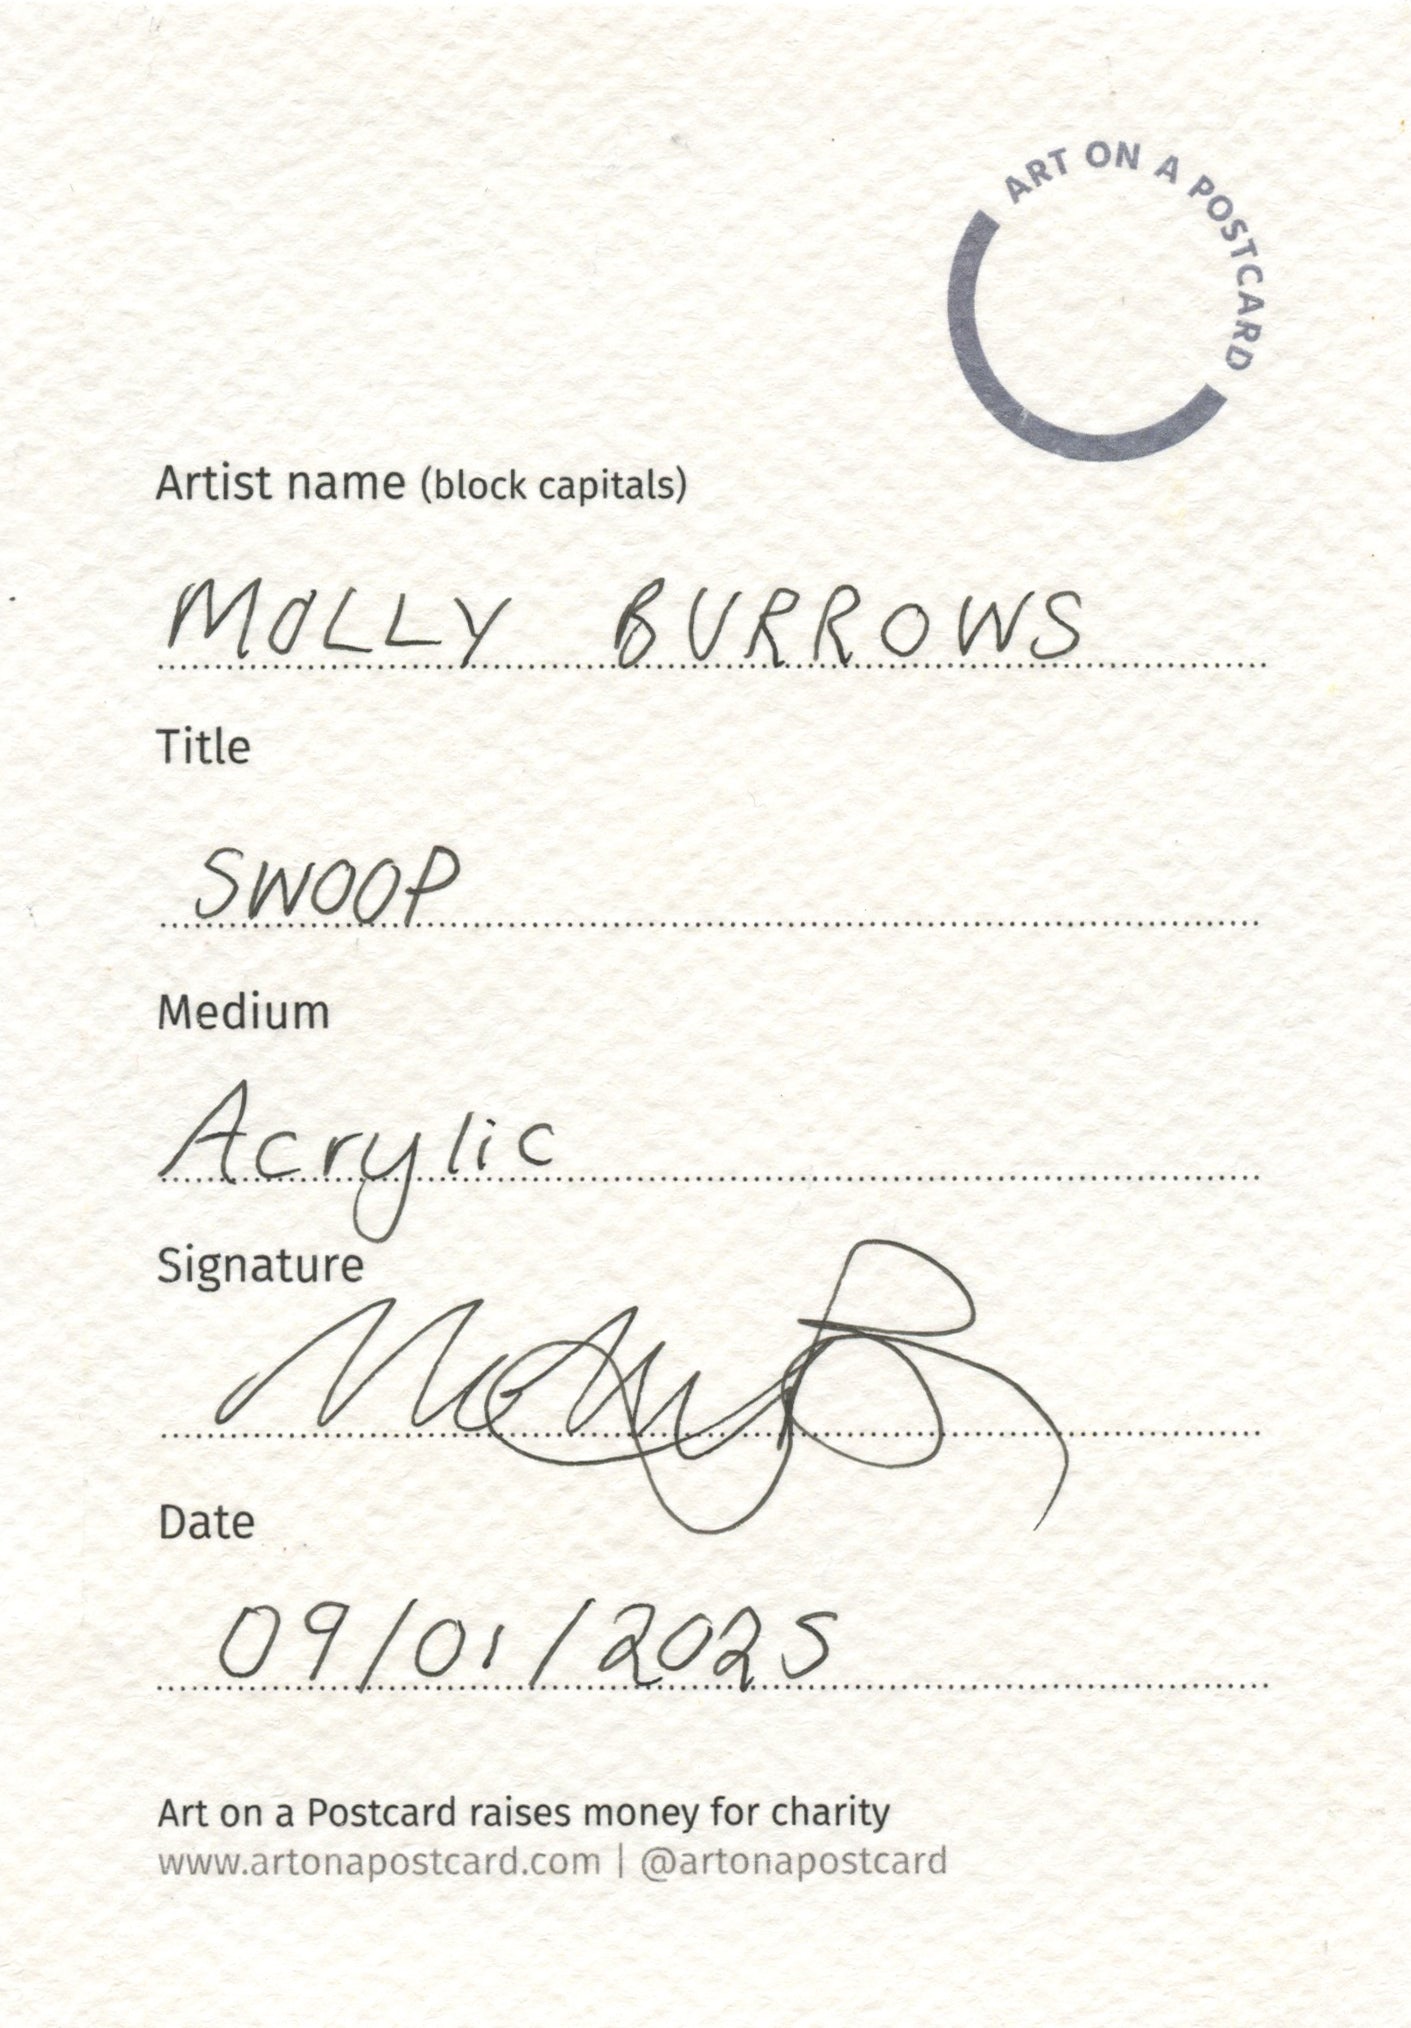 ART ON A POSTCARD
Artist name (block capitals)
MOLLY BURROWS
Title
SWOOP
Medium
Acrylic
Signature
Date
09/01/2025
Art on a Postcard raises money for charity
www.artonapostcard.com | @artonapostcard